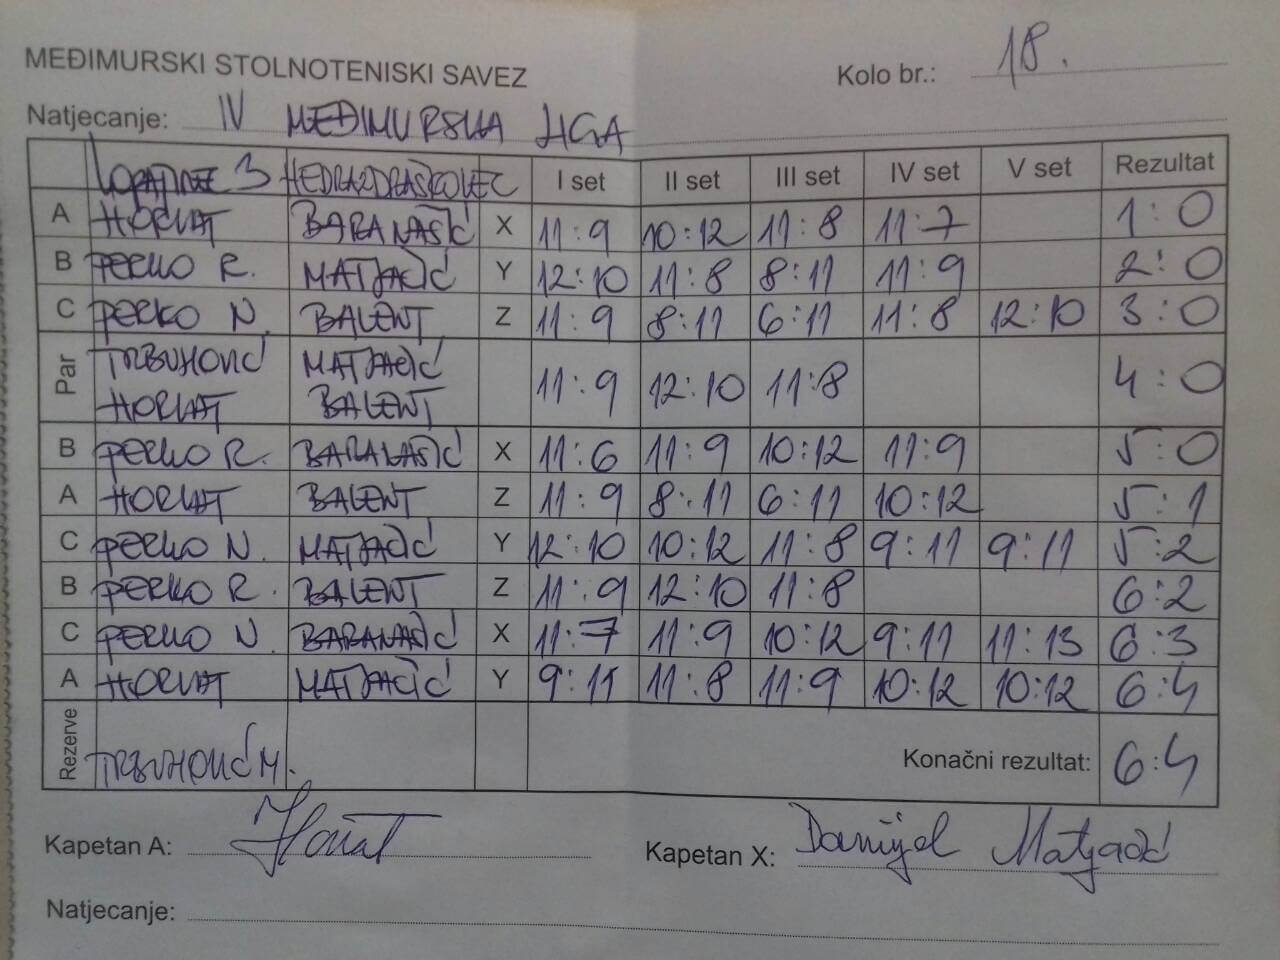 MEĐIMURSKI STOLNOTENISKI SAVEZ
Kolo br.: 18.
Natjecanje: IV MEĐIMURSKA LIGA
LOPATINEC 3 I set II set III set IV set V set Rezultat
A HORVAT BARANAŠIĆ X 11:9 10:12 11:8 11:7 1:0
B PERKO R. MATJAČIĆ Y 12:10 11:8 8:11 11:9 2:0
C PERKO N. BALENT Z 11:9 8:11 6:11 11:8 12:10 3:0
Par TRBUHOVIĆ MATJAČIĆ 11:9 12:10 11:8 4:0
HORVAT BALENT
B PERKO R. BARANAŠIĆ X 11:6 11:9 10:12 11:9 5:0
A HORVAT BALENT Z 11:9 8:11 6:11 10:12 5:1
C PERKO N. MATJAČIĆ Y 12:10 10:12 11:8 9:11 9:11 5:2
B PERKO R. BALENT Z 11:9 12:10 11:8 6:2
C PERKO N. BARANAŠIĆ X 11:7 11:9 10:12 9:11 11:13 6:3
A HORVAT MATJAČIĆ Y 9:11 11:8 11:9 10:12 10:12 6:4
Rezerve TRBUHOVIĆ M. Konačni rezultat: 6:4
Kapetan A: Horvat Kapetan X: Danijel Matjačić
Natjecanje: